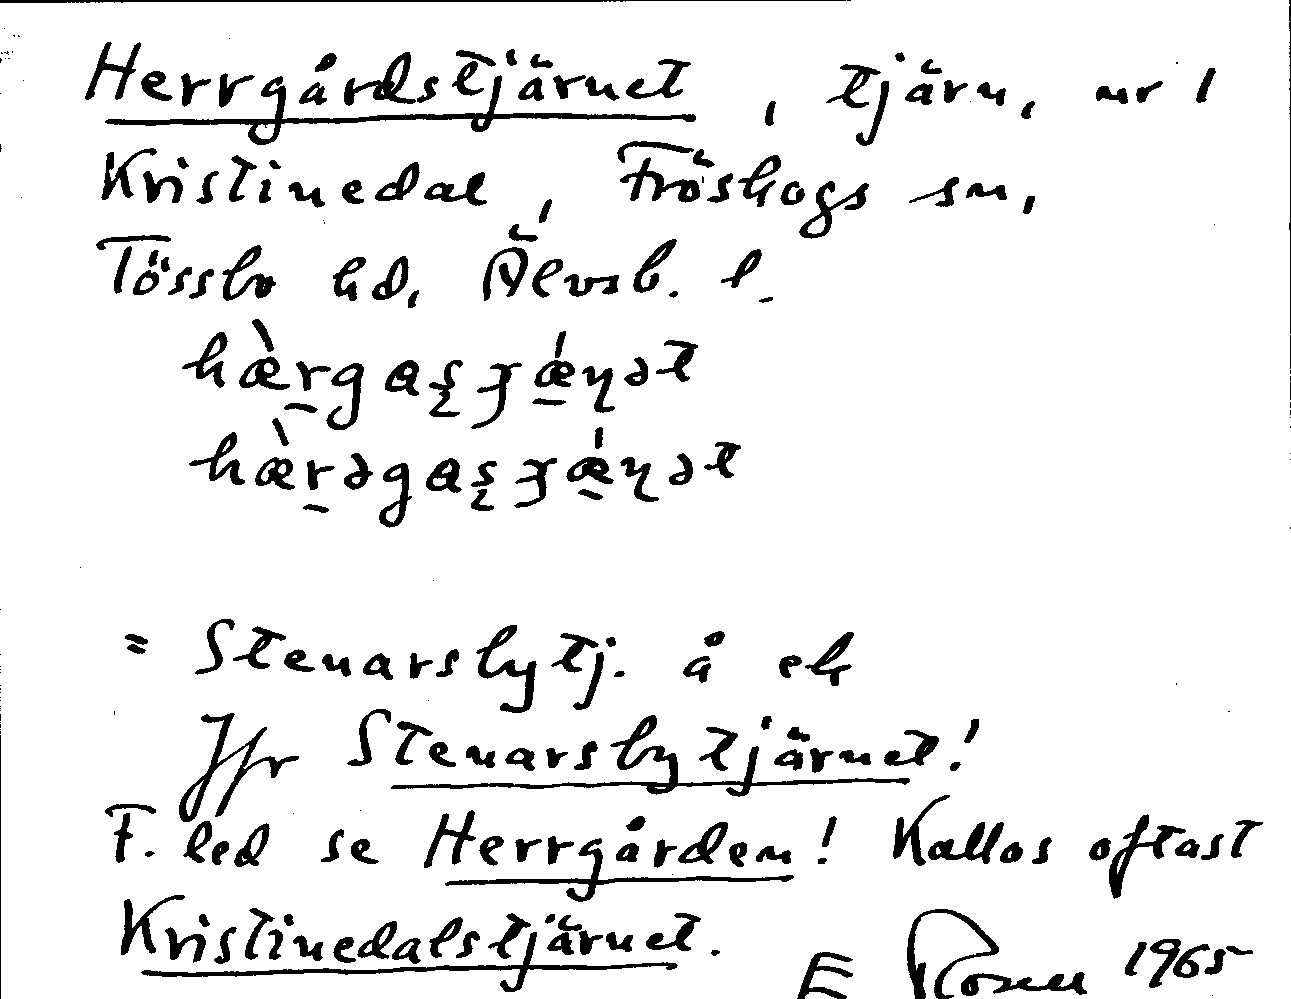 Herrgårdstjärnet, tjärn, nr 1
Kristinedal, Fröskogs sn,
Tössbo hd, Älvsb. l.
= Stenarsbytj. å ek
Jfr Stenarsbytjärnet!
F. led se Herrgården! Kallas oftast
Kristinedalstjärnet.
E Rosell 1965